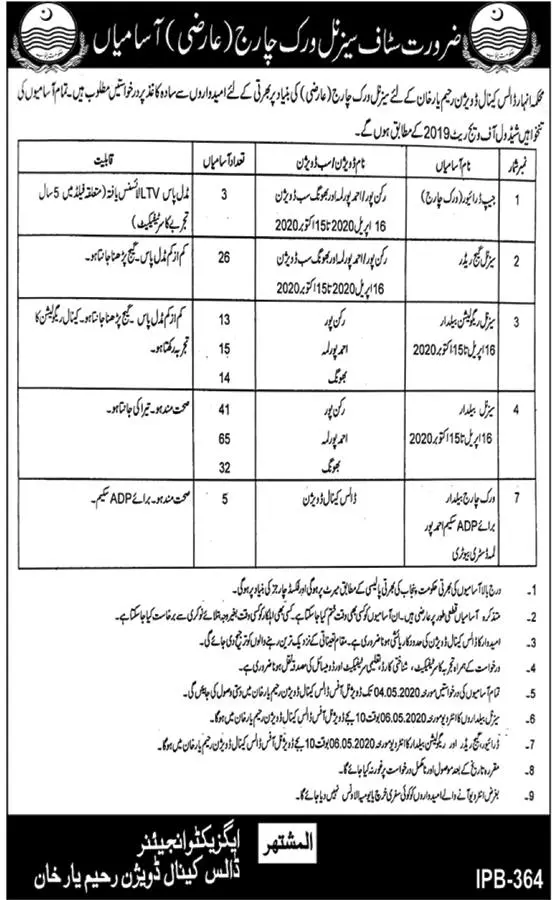 ضرورت سٹاف سیزنل ورک چارج (عارضی) آسامیاں
محکمہ انہار ڈالس کینال ڈویژن رحیم یار خان کے لئے سیزنل ورک چارج (عارضی) کی بنیاد پر بھرتی کے لئے امیدواروں سے سادہ کاغذ پر درخواستیں مطلوب ہیں۔ تمام آسامیوں کی
تنخواہیں شیڈول آف ویج ریٹ 2019 کے مطابق ہوں گے۔
نمبر شمار نام آسامیاں نام ڈویژن/سب ڈویژن تعداد آسامیاں قابلیت
1 جیپ ڈرائیور (ورک چارج) رکن پور/احمد پور لمہ اور بھونگ سب ڈویژن 3 مڈل پاس LTV لائسنس یافتہ (متعلقہ فیلڈ میں 5 سال
16 اپریل 2020 تا 15 اکتوبر 2020 تجربے کا سرٹیفکیٹ)
2 سیزنل گیج ریڈر رکن پور/احمد پور لمہ اور بھونگ سب ڈویژن 26 کم از کم مڈل پاس۔ گیج پڑھنا جانتا ہو۔
16 اپریل 2020 تا 15 اکتوبر 2020
3 سیزنل ریگولیشن بیلدار رکن پور 13 کم از کم مڈل پاس۔ گیج پڑھنا جانتا ہو۔ کینال ریگولیشن کا
16 اپریل تا 15 اکتوبر 2020 احمد پور لمہ 15 تجربہ رکھتا ہو۔
بھونگ 14
4 سیزنل بیلدار رکن پور 41 صحت مند ہو۔ تیراکی جانتا ہو۔
16 اپریل تا 15 اکتوبر 2020 احمد پور لمہ 65
بھونگ 32
7 ورک چارج بیلدار ڈالس کینال ڈویژن 5 صحت مند ہو۔ برائے ADP سکیم۔
برائے ADP سکیم احمد پور
لمہ ڈسٹری بیوٹری
1- درج بالا آسامیوں کی بھرتی حکومت پنجاب کی بھرتی پالیسی کے مطابق میرٹ پر ہوگی اور فکسڈ چارجز کی بنیاد پر ہوگی۔
2- متذکرہ آسامیاں قطعی طور پر عارضی ہیں۔ ان آسامیوں کو کسی بھی وقت ختم کیا جاسکتا ہے۔ کسی بھی اہلکار کو کسی وقت بغیر وجہ بتلائے نوکری سے برخاست کیا جاسکتا ہے۔
3- امیدوار کا ڈالس کینال ڈویژن کی حدود کا رہائشی ہونا ضروری ہے۔ مقام تعیناتی کے نزدیک ترین رہنے والوں کو ترجیح دی جائے گی۔
4- درخواست کے ہمراہ تجربہ کا سرٹیفکیٹ، شناختی کارڈ، تعلیمی سرٹیفکیٹ اور ڈومیسائل کی مصدقہ نقل ہونا ضروری ہے۔
5- تمام آسامیوں کی درخواستیں مورخہ 04.05.2020 تک ڈویژنل آفس ڈالس کینال ڈویژن رحیم یار خان میں دستی وصول کی جائیں گی۔
6- سیزنل بیلداروں کا انٹرویو مورخہ 06.05.2020 بوقت 10 بجے ڈویژنل آفس ڈالس کینال ڈویژن رحیم یار خان میں ہوگا۔
7- ڈرائیور، گیج ریڈر اور ریگولیشن بیلدار کا انٹرویو مورخہ 06.05.2020 بوقت 10 بجے ڈویژنل آفس ڈالس کینال ڈویژن رحیم یار خان میں ہوگا۔
8- مقررہ تاریخ کے بعد موصول اور نامکمل درخواست پر غور نہ کیا جائے گا۔
9- بغرض انٹرویو آنے والے امیدواروں کو کوئی سفری خرچ یا یومیہ الاؤنس نہیں دیا جائے گا۔
المشتہر
ایگزیکٹو انجینئر
ڈالس کینال ڈویژن رحیم یار خان
IPB-364